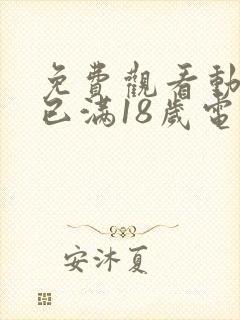 免費觀看動
已滿18歲電
安沐夏